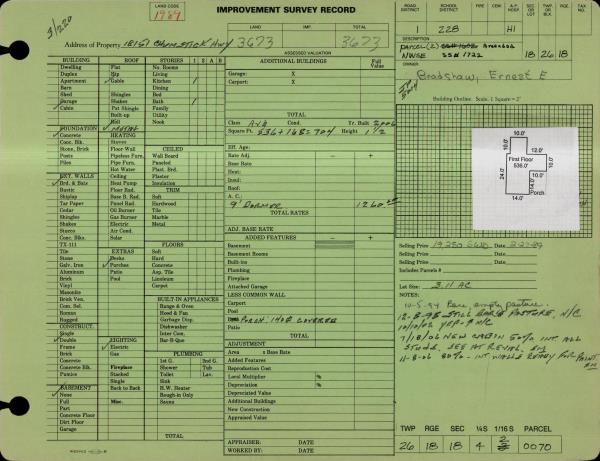 LAND CODE
1989
IMPROVEMENT SURVEY RECORD
ROAD DISTRICT
SCHOOL DISTRICT
FIRE
CEM
TWP. OR BLK.
TAX NO.
228
H1
3/220
LAND
IMP.
TOTAL
Address of Property 18151 Chumstick Hwy
3673
3673
ASSESSED VALUATION
DESCRIPTION
18 26 18
OWNER
Bradshaw, Ernest E
BUILDING
ROOF
STORIES
1 2 A B
ADDITIONAL BUILDINGS
Full Value
Dwelling
Flat
No. Rooms
Duplex
Hip
Living
Apartment
Gable
Kitchen
Barn
Dining
Shed
Shingles
Bed
Garage
Shakes
Bath
Cabin
Pat Shingle
Family
Built-up
Utility
Nook
Garage: X
Carport: X
TOTAL
Building Outline. Scale. 1 Square = 2'
FOUNDATION
Metal
Concrete
HEATING
Conc. Blk.
Stoves
Stone, Brick
Floor-Wall
CEILED
Posts
Pipeless Furn.
Wall Board
Piles
Pipe Furn.
Paneled
Hot Water
Plast. Brd.
EXT. WALLS
Ceiling
Plaster
Brd. & Bats
Heat Pump
Insulation
Rustic
Floor Rad.
TRIM
Shiplap
Base B. Rad.
Soft
Tar Paper
Panel Rad.
Hardwood
Cedar
Oil Burner
Tile
Shingles
Gas Burner
Marble
Shakes
Electric
Metal
Stucco
Air Cond.
Conc. Blks.
Solar
TX-111
FLOORS
Tile
EXTRAS
Soft
Stone
Decks
Hard
Galv. Iron
Porches
Concrete
Aluminum
Patio
Asp. Tile
Brick
Pool
Linoleum
Vinyl
Carpet
Masonite
Brick Ven.
BUILT-IN APPLIANCES
Com. Sel.
Range & Oven
Roman
Hood & Fan
Rugged
Garbage Disp.
CONSTRUCT.
Dishwasher
Single
Inter Com.
Double
LIGHTING
Bar-B-Que
Frame
Electric
Brick
Gas
PLUMBING
Concrete
1st G.
2nd G.
Concrete Blk.
Fireplace
Shower
Tub
Pumice
Stacked
Toilet
Lav.
Single
Sink
BASEMENT
Back to Back
H.W. Heater
None
Rough-in Plumbing
Full
Misc.
Saunas
Part
Concrete Floor
Dirt Floor
Garage
TOTAL
Class A-1 B Yr. Built 2006
Square Ft. 536+168=704 Height 1 1/2
Eff. Age:
Rate Adj. - +
Base
Heat:
Insul:
Roof:
A. C.:
9' Dormer 1260
TOTAL RATES
ADJ. BASE RATE
ADDED FEATURES - +
Basement
Basement Rooms
Built-ins
Plumbing
Fireplace
Attached Garage
LESS COMMON WALL
Carport
Porch 140 covered
Patio
TOTAL
ADJUSTMENT
Area x Base Rate
Added Features
Reproduction Cost
Local Multiplier %
Depreciation %
Depreciated Value
Additional Buildings
New Construction
Appraised Value
APPRAISER: DATE
WORKED BY: DATE
10.0'
10.0'
10.0'
12.0'
First Floor
536.0'
24.0'
10.0'
14.0'
Porch
14.0'
Selling Price 19,250 Date 2-27-89
Selling Price Date
Selling Price Date
Includes Parcels #
Lot Size: 3.11 AC
NOTES:
10-5-94 Bare empty pasture.
12-8-98 Still bare pasture, N/C
7/18/06 New cabin 50% int. all
studs. See at reval.
11-8-06 80% - int walls ready for paint.
TWP RGE SEC 1/4S 1/16S PARCEL
26 18 18 4 2 0070